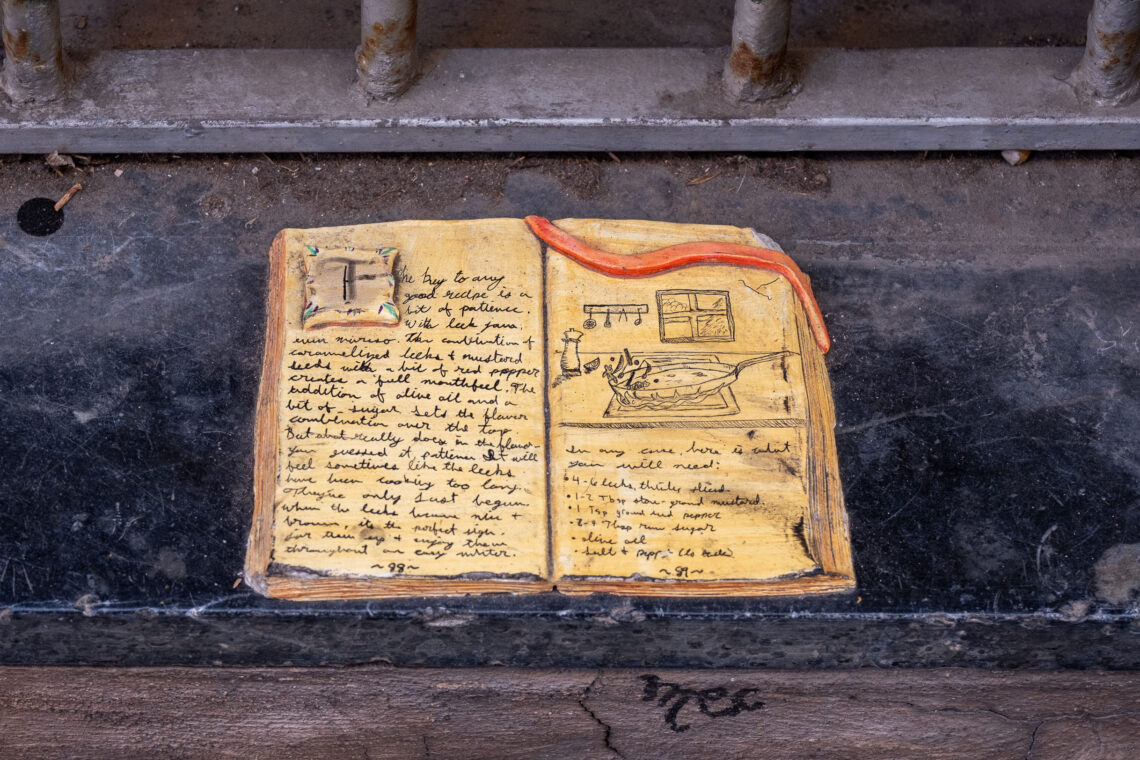 The key to any
good recipe is a
bit of patience.
With leek jam,
even more so. The combination of
caramelized leeks & mustard
seeds with a bit of red pepper
creates a full mouthfeel. The
addition of olive oil and a
bit of sugar sets the flavor
combination over the top.
But what really does in the flavor-
you guessed it, patience. It will
feel sometimes like the leeks
have been cooking too long.
They're only just begun.
When the leeks become nice &
brown, it's the perfect sign.
jar them up & enjoy them
throughout an easy winter.
~88~
In any case, here is what
you will need:
• 4-6 leeks, thickly sliced
• 1-2 Tbsp stone-ground mustard
• 1 Tsp ground red pepper
• 2-4 Tbsp raw sugar
• olive oil
• salt & pepper
~89~